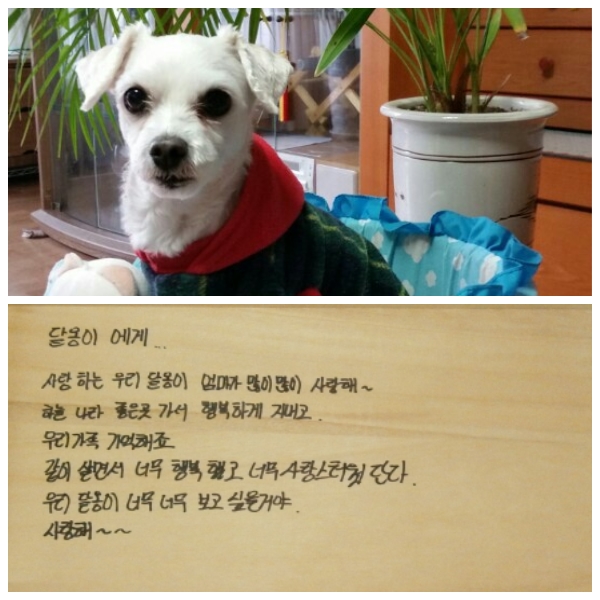 달옹이 에게...
사랑 하는 우리 달옹이 엄마가 많이많이 사랑해~
하늘 나라 좋은곳 가서 행복하게 지내고.
우리가족 기억해죠
같이 살면서 너무 행복 했고 너무 사랑스러웠 단다.
우리 달옹이 너무 너무 보고 싶을거야.
사랑해~~